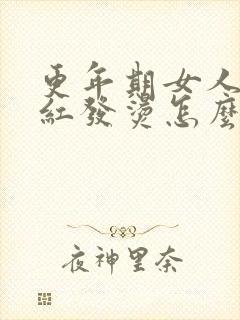 更年期女人
紅發燙怎麼
夜神里奈